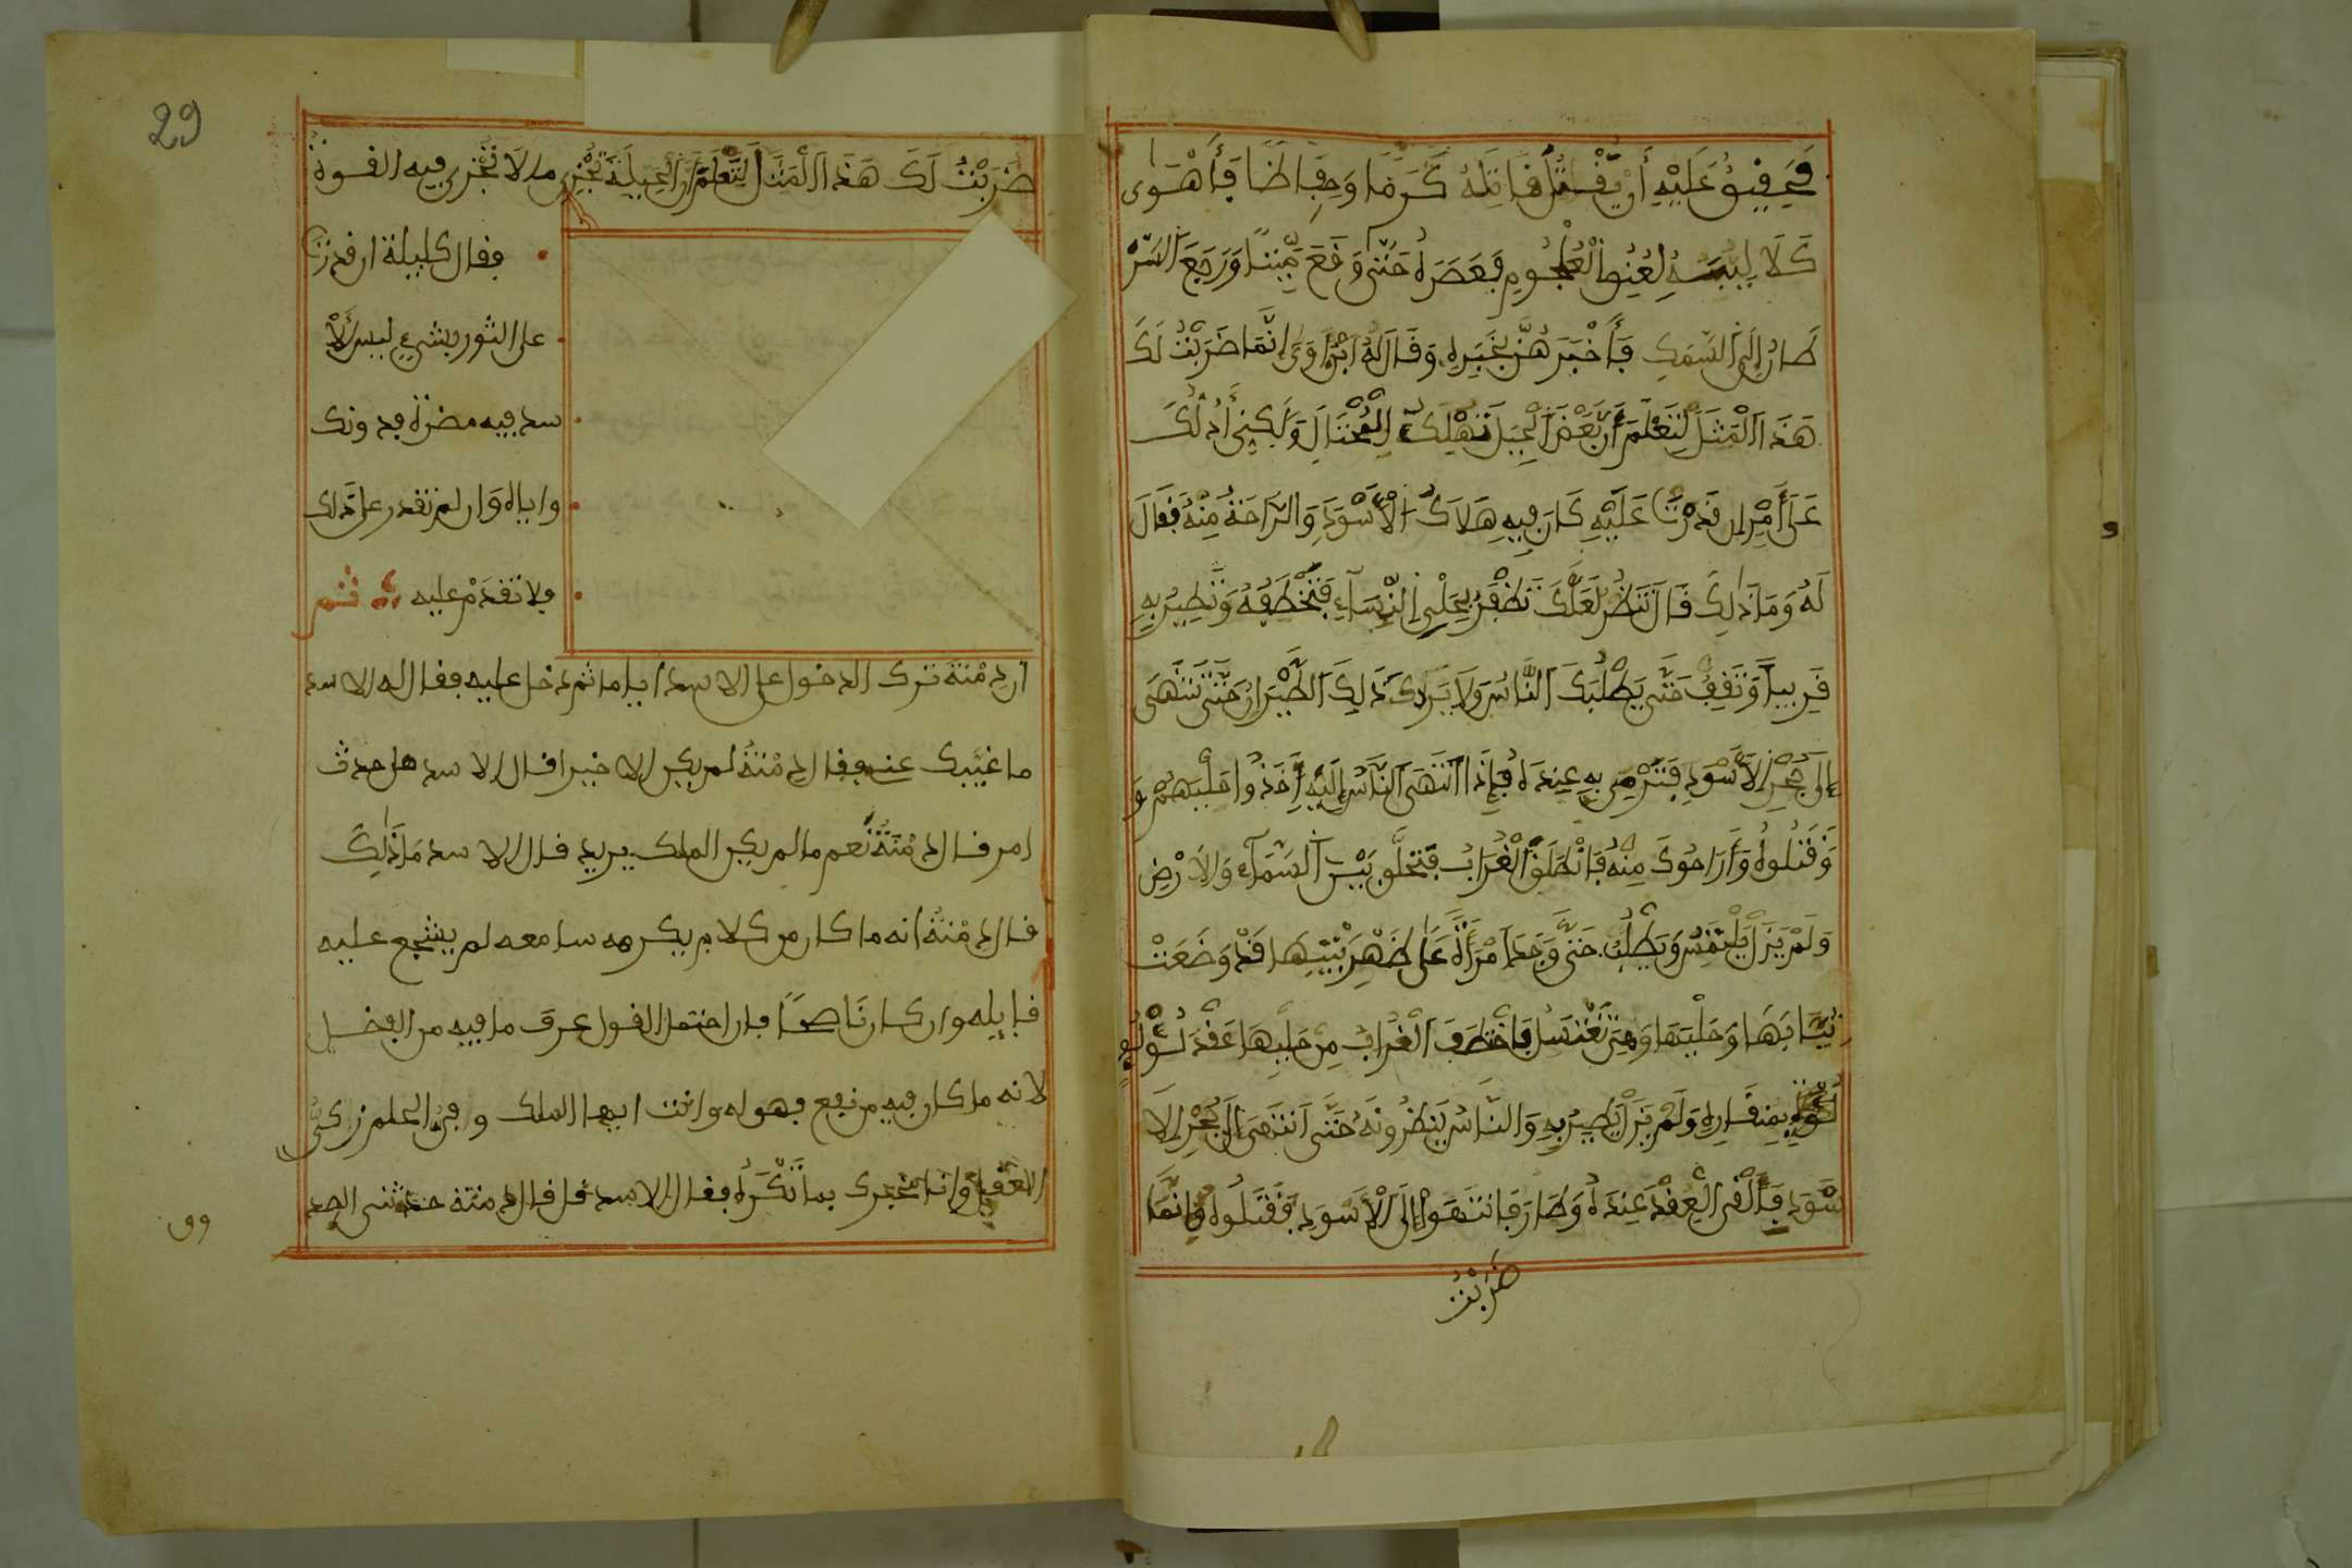 فَحَقِيقٌ عَلَيْهِ أَن يَّقْتُلَ قَاتِلَهُ كَرَمًا وَحِفَاظًا فَأَهْوَى
لِعُنُقِ الْعُلْجُومِ فَعَصَرَهُ حَتَّى وَقَعَ مَيِّتًا وَرَجَعَ السَّرَ
طَانُ إِلَى السَّمَكِ فَأَخْبَرَهُنَّ بِخَبَرِهِ وَقَالَ لَهُ ابْنُ آوَى إِنَّمَا ضَرَبْتُ لَكَ
هَذَا الْمَثَلَ لِتَعْلَمَ أَنَّ بَعْضَ الْحِيَلِ تُهْلِكُ الْمُحْتَالَ وَلَكِنِّي أَدُلُّكَ
عَلَى أَمْرٍ إِن قَدَرْتَ عَلَيْهِ كَانَ فِيهِ هَلَاكُ الْأَسْوَدِ وَالرَّاحَةُ مِنْهُ فَقَالَ
لَهُ وَمَا ذَلِكَ قَالَ تَنظُرُ لَعَلَّكَ تَظْفَرُ بِحَلْيِ النِّسَاءِ فَتَخْطَفَهُ وَتَطِيرُ بِهِ
قَرِيباً وَتَقِفُ حَتَّى يَطْلُبَكَ النَّاسُ وَلَا يَزَالُ كَذَلِكَ الطَّيَرَانُ حَتَّى تَنتَهِيَ
إِلَى جُحْرِ الْأَسْوَدِ فَتَرْمِيَ بِهِ عِندَهُ فَإِذَا انْتَهَى النَّاسُ إِلَيْهِ أَخَذُوا حَلْيَهُمْ وَ
وَقَتَلُوهُ وَأَرَاحُوكَ مِنْهُ فَانْطَلَقَ الْغُرَابُ فَتَحَلَّقَ بَيْنَ السَّمَاءِ وَالْأَرْضِ
وَلَمْ يَزَلْ يَلْتَمِسُ وَيَطْلُبُ حَتَّى وَجَدَ امْرَأَةً عَلَى ظَهْرِ بَيْتِهَا قَدْ وَضَعَتْ
ثِيَابَهَا وَحَلْيَهَا وَهِيَ تَغْتَسِلُ فَاخْتَطَفَ الْغُرَابُ مِنْ حَلْيِهَا عَقْدَ لُؤْلُؤٍ
بِمِنقَارِهِ وَلَمْ يَزَلْ يَطِيرُ بِهِ وَالنَّاسُ يَنظُرُونَهُ حَتَّى انتَهَى إِلَى جُحْرِ الْأَ
سْوَدِ فَأَلْقَى الْعِقْدَ عِندَهُ وَطَارَ فَانتَهَوْا إِلَى الْأَسْوَدِ فَقَتَلُوهُ وَإِنَّمَا
ضَرَبْتُ
29
ضَرَبْتُ لَكَ هَذَا الْمَثَلَ لِتَعْلَمَ أَنَّ الْحِيلَةَ تُجْزِي مَا لَا تُجْزِي فِيهِ القوةُ
فقال كليلة ان قدرتَ
على الثور بشيء ليس لِلْأ
سد فيه مضرة فدونك
واياه وان لم تقدر على ذلك
فلا تقدَمْ عليه ثم
ان دِمْنَة ترك الدخول على الاسد اياما ثم دخل عليه فقال له الاسد
ما غيَّبك عني فقال دِمْنَةُ لم يكن الا خيرا قال الاسد هل حدث
امر قال دِمْنَةُ نعم ما لم يكن الملك يريد قال الاسد مَا ذَلِكَ
قال دِمْنَةُ انه ما كان من كلام يكرهه سامعه لم يشجع عليه
قايله وان كان نَاصحاً فان احتمل القول عرف ما فيه من الفضل
لانه ما كان فيه من نفع فهو له وانت ايها الملك
العقل وانا مخبرك بما تَكْرَهُ فقال الاسد قل قال دمنة حدثني الصد